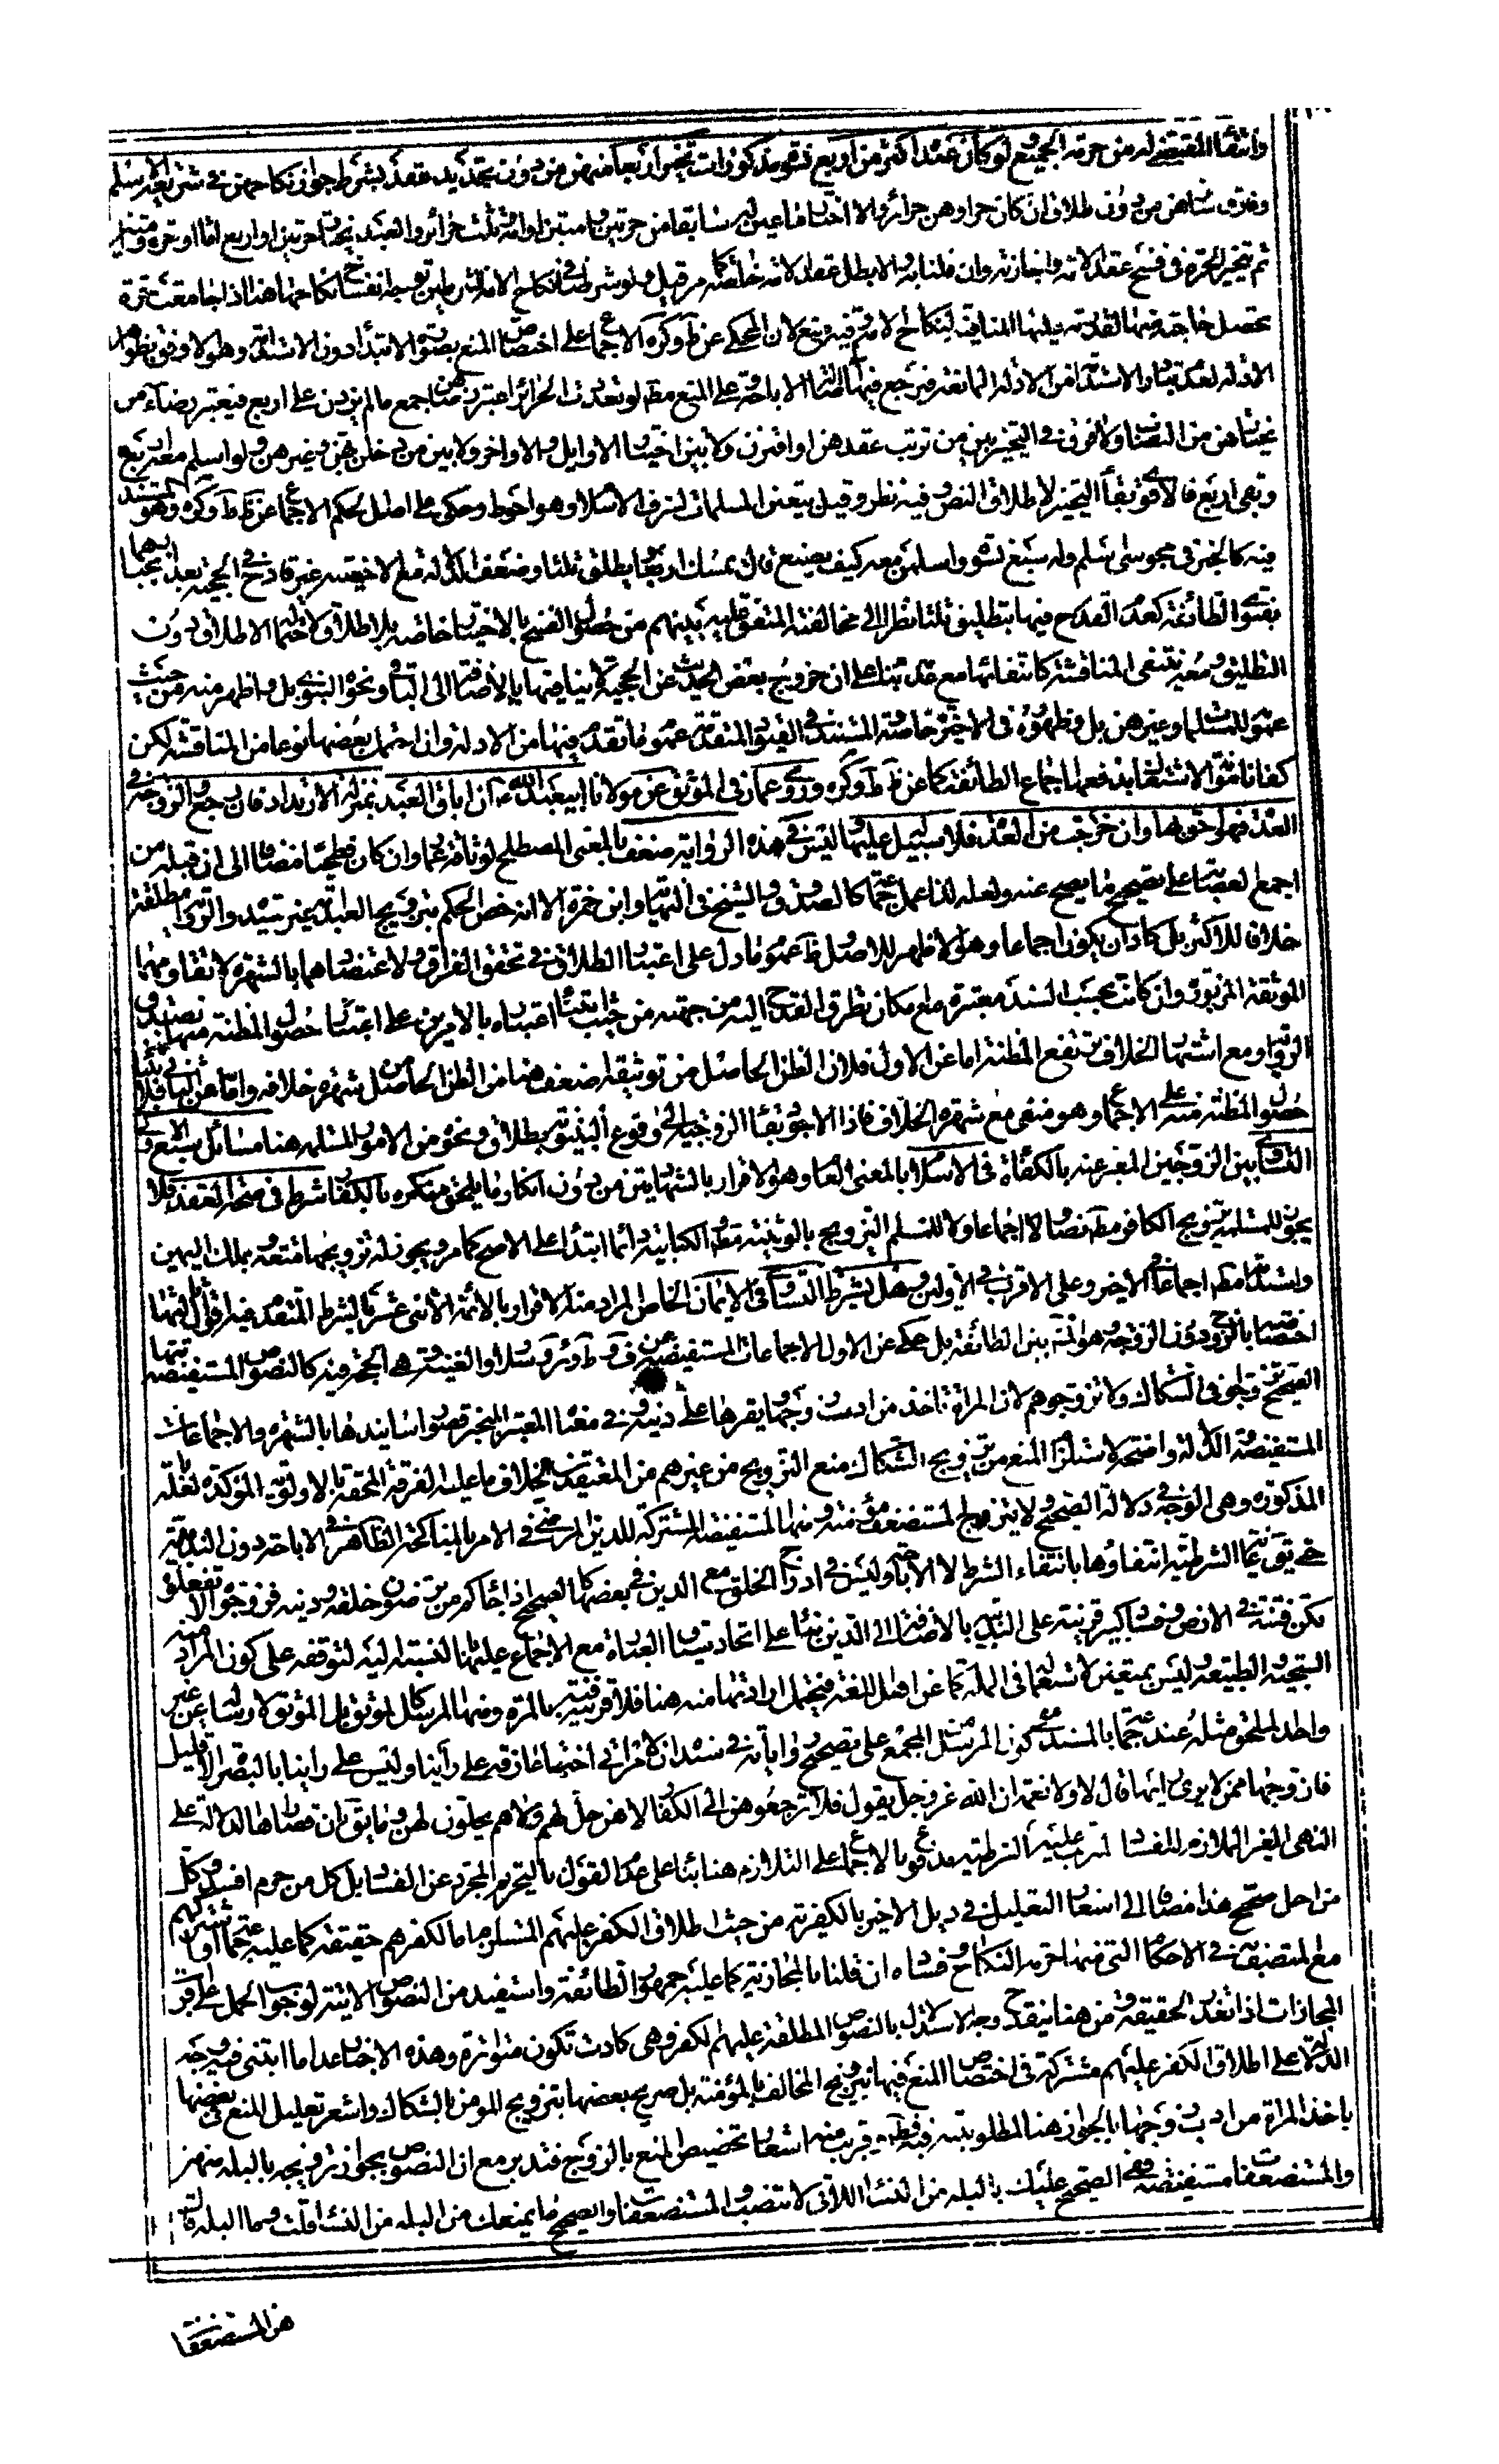 وانتفاء المقتضي له من حرمة الجميع لو كان عنده اكثر من اربع نسوة مذكورات تخير اربعا منهن من دون تجديد عقد بشرط جواز نكاحهن في شريعة الاسلام
وفارق سائرهن من دون طلاق ان كان حرا وهن حرائر والا اختار ما عين له سابقا من حرتين وامتين او امة وثلث حرائر والعبد يختار حرتين او اربع اماء او حرة وامتين
ثم تتخير الحرة في فسخ عقد الامة واجازته وان قلنا بالابطل عقد الامة خاصة كما مر قيل ولو شرطنا في نكاح الامة الشرطين توجه انفساخ نكاحها هنا اذا جامعت حرة
تحصل حاجته منها لقدرته عليها المنافية لنكاح الامة وفيه منع لان المحكي عن ط وكره الاجماع على اختصاص المنع بصورة الابتداء دون الاستدامة وهو الاوفق بظواهر
الادلة لعدم تبادر الاستدامة من الادلة المانعة فيرجع فيها الى اصالة الاباحة على المنع مطلقا ولو تعددت الحرائر اعتبر رضاهن جمع ما لم يزدن على اربع فيعتبر رضاء من
يختارهن من النصاب ولا فرق في التخيير بين من ترتب عقدهن او اقترن ولا بين اختيار الاوايل والاواخر ولا بين من دخل بهن وغيرهن ولو اسلم معه اربع
وبقي اربع فالاقوى بقاء التخيير لاطلاق النص وفيه نظر وقيل يتعين المسلمات لشرف الاسلام وهو احوط وحكى على اصل الحكم الاجماع عن ط وكره وهو المستند
فيه كالخبر في مجوسي اسلم وله سبع نسوة واسلمن معه كيف يصنع قال يمسك اربعا ويطلق ثلثا وضعف الدلالة مع الاخيرة غير قادح في الحجية بعد انجبارهما
بفتوى الطائفة كعدم القدح فيها بتطليق ثلثا نظرا الى مخالفته المتفق عليه بينهم من حصول الفسخ بالاختيار خاصة بلا طلاق لاحتمال الاطلاق دون
التطليق ومعه تنتفي المناقشة كانتفائها مع عدمه بناء على ان خروج بعض الحديث عن الحجية لا ينافيها بالاضافة الى الباقي ونحوه النبوي بل واظهر منه من حيث
عمومه للمسلمات وغيرهن بل وظهوره في الاخير خاصة المستند في الفتوى المتقدم عموم ما تقدم فيها من الادلة وان احتمل بعضها نوعا من المناقشة لكن
كفانا مؤنة الاشتغال بدفعها اجماع الطائفة كما عن ط وكره وروى عمار في الموثق عن مولانا ابي عبد الله ع ان اباق العبد بمنزلة الارتداد فان رجع والزوجة في
العدة فهو احق بها وان خرجت من العدة فلا سبيل عليها وليس في هذه الرواية ضعف بالمعنى المصطلح لوثاقة عمار وان كان فطحيا مضافا الى ان قبله من
اجمع العصابة على تصحيح ما يصح عنه ولعله لذا عمل بها جماعة كالصدوق والشيخ في النهاية وابن حمزة الا انه خص الحكم بتزويج العبد امة غير سيده والرواية مطلقة
خلافا للاكثر بل كاد ان يكون اجماعا وهو الاظهر للاصل وعموم ما دل على اعتبار الطلاق في تحقق الفراق ولاعتضادهما بالشهرة لا تقاومهما
الموثقة المزبورة وان كانت بحسب السند معتبرة مع امكان تطرق القدح اليه من جهته من حيث بناء اعتباره بالامرين على اعتبار حصول المظنة منهما بصدق
الرواية ومع اشتهار الخلاف ترتفع المظنة اما عن الاول فلان الظن الحاصل من توثيقه ضعف هنا من الظن الحاصل من شهرة خلافه واما عن الثاني فلان
حصول المظنة منه على الاجماع وهو منفي مع شهرة الخلاف فاذا الاجود بقاء الزوجية الى وقوع البينونة بطلاق ونحوه من الامور المسلمة هنا مسائل سبع الاولى
التساوي بين الزوجين المعبر عنه بالكفاءة في الاسلام بالمعنى العام وهو الاقرار بالشهادتين من دون انكار ما يلحق منكره بالكفار شرط في صحة العقد فلا
يجوز للمسلمة تزويج الكافر مطلقا نصا واجماعا ولا للمسلم التزويج بالوثنية مطلقا والكتابية دائما ابتداء على الاصح كما مر ويجوز له تزويجها متعة وبملك اليمين
واستدامة مطلقا اجماعا في الاخير وعلى الاقرب في الاولين وهل يشترط التساوي في الايمان الخاص المراد منه الاقرار بالائمة الاثنى عشر بالشرط المتقدم فيه اقوال ثالثها
اختصاصه بالزوج دون الزوجة هو الاشهر بين الطائفة بل حكي عن الاول الاجماعات المستفيضة عن ف وط وئر وسلار والغنية وهي الحجة فيه كالنصوص المستفيضة منها
الصحيح تزوجوا في الشكاك ولا تزوجوهم لان المرأة تأخذ من ادب زوجها ويقهرها على دينه وفي معناه المعتبرة المنجبر قصور اسانيدها بالشهرة والاجماعات
المستفيضة الدلالة واضحة لاستلزام المنع من تزويج الشكاك منع التزويج من غيرهم من المعتقدين لخلاف ما عليه الفرقة المحقة بالاولوية المؤكدة بالعلة
المذكورة وهي الوجه في دلالة الصحيح ولا يتزوج المستضعف مؤمنة ومنها المستفيضة المشتركة للدين المرضي في الامر بالمناكحة الظاهر في الاباحة دون الندبية
حتى يتوهم الشرطية انتفاؤها بانتفاء الشرط لا الاباحة وليس في ادراج الخلق مع الدين في بعضها كالصحيح اذا جائكم من ترضون خلقه ودينه فزوجوه الا تفعلوه
تكن فتنة في الارض وفساد كبير قرينة على الندب بالاضافة الى الدين بناء على اتحاد سياق العبارة مع الاجماع عليه بالنسبة اليه لتوقفه على كون المراد منه
السجية والطبيعة وليس بمتعين لاستعماله في الملة كما عن اهل اللغة فيحتمل ارادتها منه هنا فلا قرينية بالمرة ومنها المرسل كالموثق بل الموثق لارساله عن غير
واحد الملحق مثله عند جماعة بالمسند مع كون المرسل من المجمع على تصحيح رواياته في سنده ان لامرأتي اختا عارفة على رأينا وليس على رأينا بالبصرة الا قليل
فازوجها ممن لا يرى رأيها قال لا ولا نعمة ان الله عز وجل يقول فلا ترجعوهن الى الكفار لا هن حل لهم ولا هم يحلون لهن وما يقال ان قصاراها الدلالة على
النهي الغير الملازم للفساد المترتب عليه الشرطية مدفوع بالاجماع على التلازم هنا بناء على عدم القول بالتحريم المجرد عن الفساد بل كل من حرم افسد وكل
من احل صحح هذا مضافا الى اشعار التعليل في ذيل الاخير بالكفرية من حيث اطلاق الكفر عليهم المستلزم اما لكفرهم حقيقة كما عليه جماعة او لاشتراكهم
مع المتصف به في الاحكام التي منها حرمة النكاح وفساده ان قلنا بالمجازية كما عليه جمهور الطائفة واستفيد من النصوص الاتية لوجوب الحمل على اقرب
المجازات اذا تعذر الحقيقة ومن هنا ينقدح وجه الاستدلال بالنصوص المطلقة عليهم الكفر وهي كادت تكون متواترة وهذه الاخبار عدا ما ابتنى فيه وجه
الدلالة على اطلاق الكفر عليهم مشتركة في اختصاص المنع فيها بتزويج المخالف بالمؤمنة بل صريح بعضها بتزويج المؤمن بالشكاك واشعر تعليل المنع في بعضها
باخذ المرأة من ادب زوجها بالجواز هنا المطلوبية فيه فظهر قريب منه اشعار تخصيص المنع بالزوج فتدبر مع ان النصوص بجواز تزويجه بالبله منهن
والمستضعفات مستفيضة ففي الصحيح عليك بالبله من النساء اللاتي لا تنصب والمستضعفات والصحيح ما يمنعك من البله من النساء قلت وما البله قال
هن المستضعفات